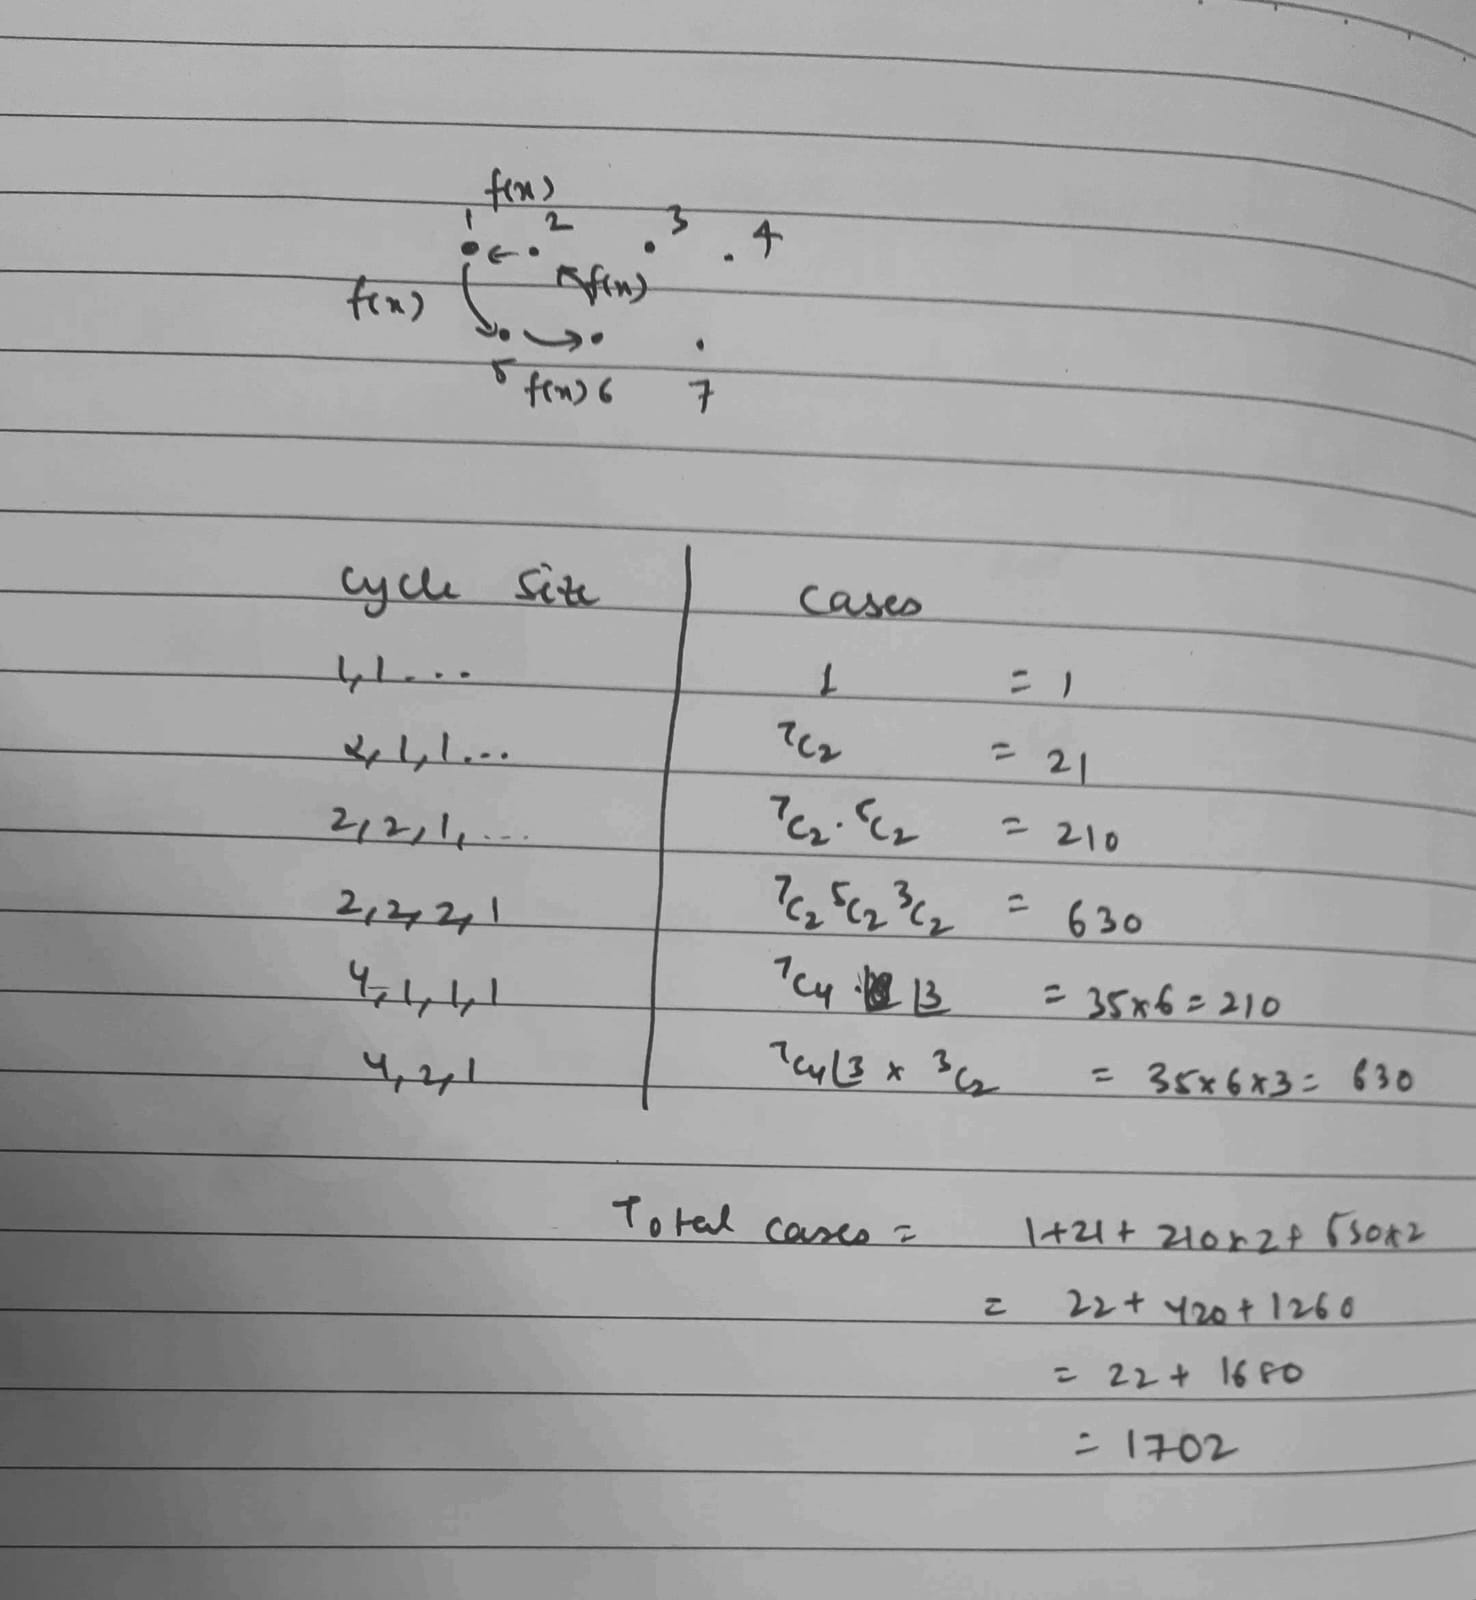 f(x)
1 2 3 4
f(x) f(x)
5 f(x) 6 7
cycle size cases
1,1... 1 = 1
2,1,1... ⁷C₂ = 21
2,2,1,... ⁷C₂.⁵C₂ = 210
2,2,2,1 ⁷C₂ ⁵C₂ ³C₂ = 630
4,1,1,1 ⁷C₄ . |3 = 35x6 = 210
4,2,1 ⁷C₄ |3 x ³C₂ = 35x6x3 = 630
Total cases = 1+21+ 210x2+ 630x2
= 22+ 420+1260
= 22+ 1680
= 1702